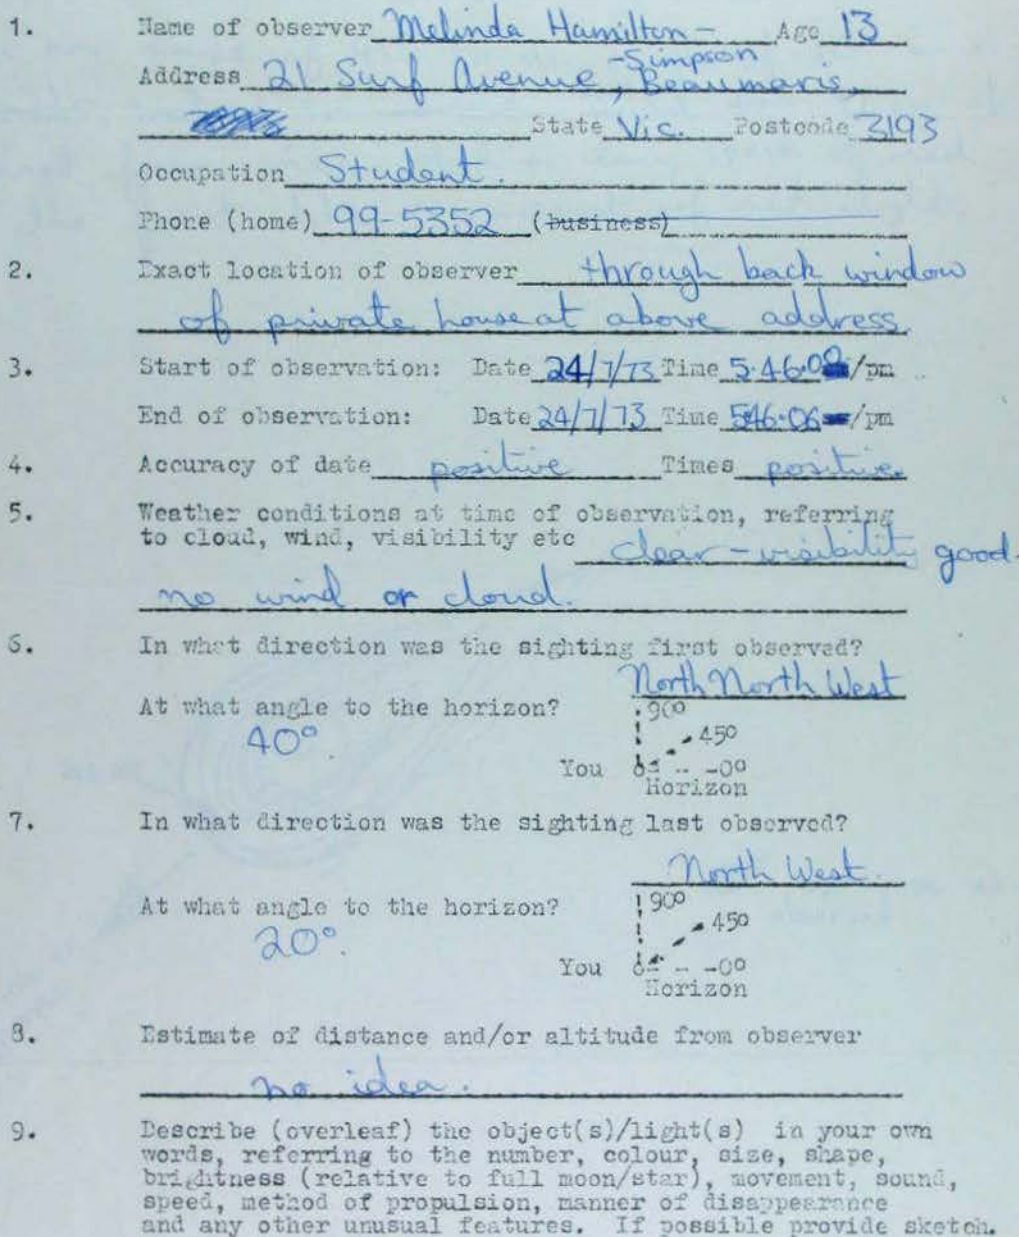 1. Name of observer Melinda Hamilton- Age 13
-Simpson
Address 21 Surf Avenue, Beaumaris,
State Vic. Postcode 3193
Occupation Student.
Phone (home) 99-5352 (business)
2. Exact location of observer through back window
of private house at above address
3. Start of observation: Date 24/7/73 Time 5.46.00/pm
End of observation: Date 24/7/73 Time 546.06/pm
4. Accuracy of date positive Times positive
5. Weather conditions at time of observation, referring
to cloud, wind, visibility etc clear - visibility good.
no wind or cloud.
6. In what direction was the sighting first observed?
North North West
At what angle to the horizon? 90°
40° 45°
You 0°
Horizon
7. In what direction was the sighting last observed?
North West.
At what angle to the horizon? 90°
20°. 45°
You 0°
Horizon
8. Estimate of distance and/or altitude from observer
no idea.
9. Describe (overleaf) the object(s)/light(s) in your own
words, referring to the number, colour, size, shape,
brightness (relative to full moon/star), movement, sound,
speed, method of propulsion, manner of disappearance
and any other unusual features. If possible provide sketch.